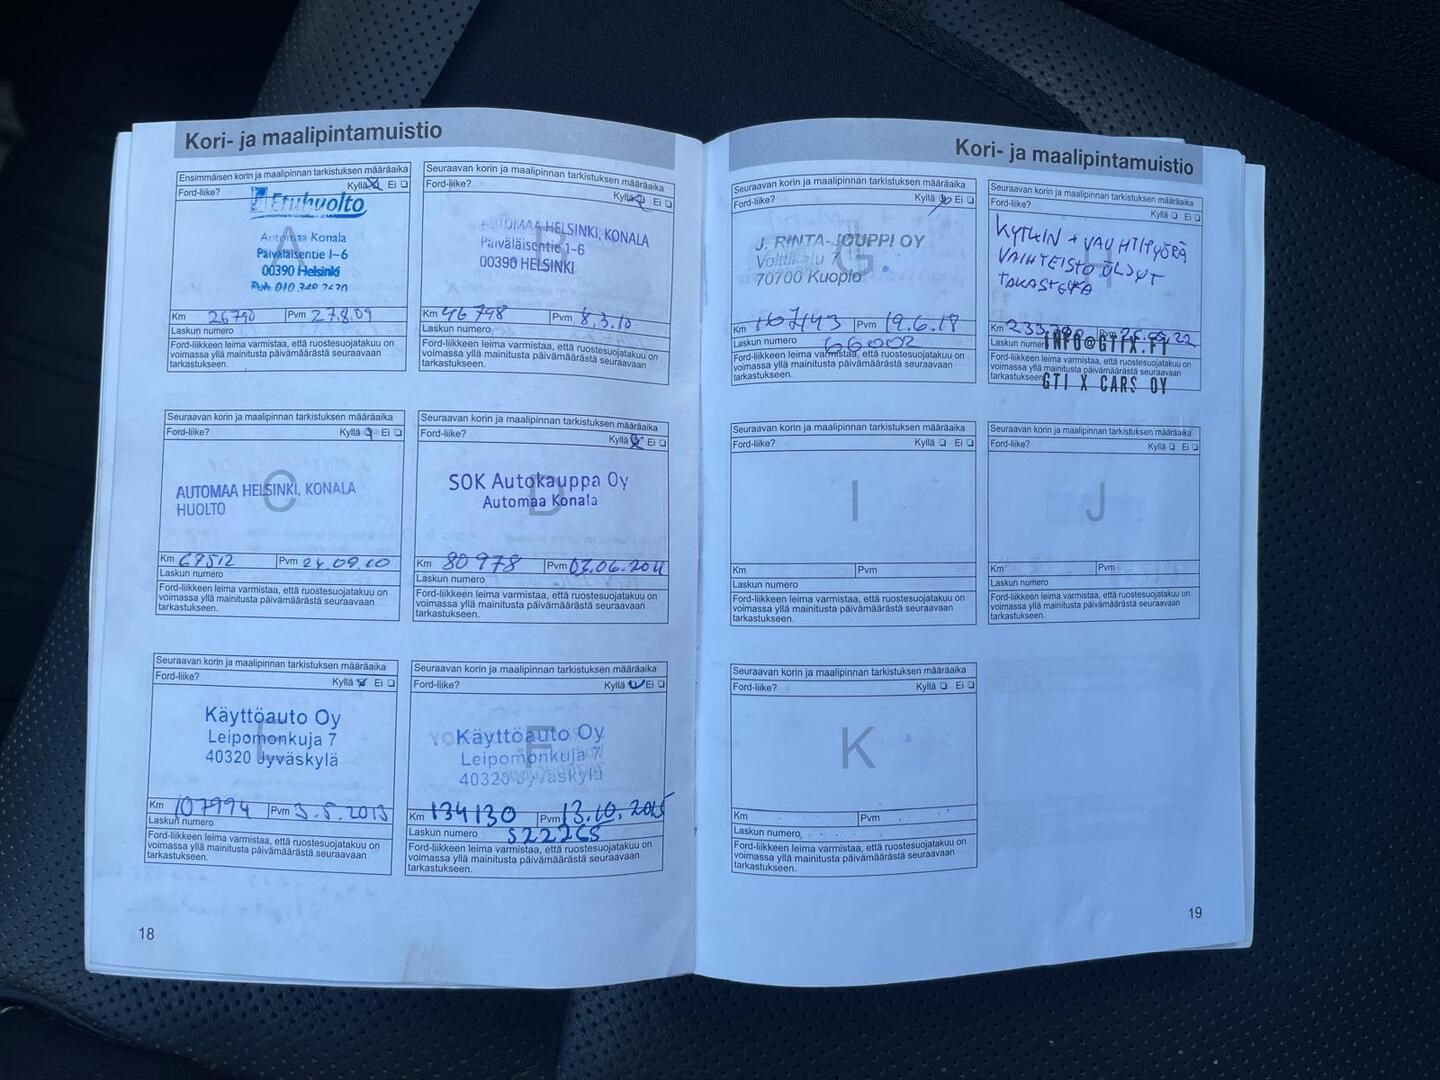 Kori- ja maalipintamuistio
Ensimmäisen korin ja maalipinnan tarkistuksen määräaika
Ford-liike? Kyllä Ei
A
Etuhuolto
Automaa Konala
Päiväläisentie 1–6
00390 Helsinki
Km 26790 Pvm 27.8.09
Laskun numero
Ford-liikkeen leima varmistaa, että ruostesuojatakuu on
voimassa yllä mainitusta päivämäärästä seuraavaan
tarkastukseen.
Seuraavan korin ja maalipinnan tarkistuksen määräaika
Ford-liike? Kyllä Ei
B
AUTOMAA HELSINKI, KONALA
Päiväläisentie 1-6
00390 HELSINKI
Km 46798 Pvm 8.3.10
Laskun numero
Ford-liikkeen leima varmistaa, että ruostesuojatakuu on
voimassa yllä mainitusta päivämäärästä seuraavaan
tarkastukseen.
Seuraavan korin ja maalipinnan tarkistuksen määräaika
Ford-liike? Kyllä Ei
C
AUTOMAA HELSINKI, KONALA
HUOLTO
Km 69512 Pvm 24.09.10
Laskun numero
Ford-liikkeen leima varmistaa, että ruostesuojatakuu on
voimassa yllä mainitusta päivämäärästä seuraavaan
tarkastukseen.
Seuraavan korin ja maalipinnan tarkistuksen määräaika
Ford-liike? Kyllä Ei
D
SOK Autokauppa Oy
Automaa Konala
Km 80978 Pvm 03.06.2011
Laskun numero
Ford-liikkeen leima varmistaa, että ruostesuojatakuu on
voimassa yllä mainitusta päivämäärästä seuraavaan
tarkastukseen.
Seuraavan korin ja maalipinnan tarkistuksen määräaika
Ford-liike? Kyllä Ei
E
Käyttöauto Oy
Leipomonkuja 7
40320 Jyväskylä
Km 107994 Pvm 3.5.2013
Laskun numero
Ford-liikkeen leima varmistaa, että ruostesuojatakuu on
voimassa yllä mainitusta päivämäärästä seuraavaan
tarkastukseen.
Seuraavan korin ja maalipinnan tarkistuksen määräaika
Ford-liike? Kyllä Ei
F
Käyttöauto Oy
Leipomonkuja 7
40320 Jyväskylä
Km 134130 Pvm 13.10.2015
Laskun numero 522265
Ford-liikkeen leima varmistaa, että ruostesuojatakuu on
voimassa yllä mainitusta päivämäärästä seuraavaan
tarkastukseen.
18
Kori- ja maalipintamuistio
Seuraavan korin ja maalipinnan tarkistuksen määräaika
Ford-liike? Kyllä Ei
G
J. RINTA-JOUPPI OY
Volttikatu 7
70700 Kuopio
Km 167443 Pvm 19.6.18
Laskun numero 66002
Ford-liikkeen leima varmistaa, että ruostesuojatakuu on
voimassa yllä mainitusta päivämäärästä seuraavaan
tarkastukseen.
Seuraavan korin ja maalipinnan tarkistuksen määräaika
Ford-liike? Kyllä Ei
H
KYTKIN + VAUHTIPYÖRÄ
VAIHTEISTO ÖLJYT
TAKASTEFA
Km Pvm
Laskun numero INFO@GTIX.FI
Ford-liikkeen leima varmistaa, että ruostesuojatakuu on
voimassa yllä mainitusta päivämäärästä seuraavaan
tarkastukseen. GTI X CARS OY
Seuraavan korin ja maalipinnan tarkistuksen määräaika
Ford-liike? Kyllä Ei
I
Km Pvm
Laskun numero
Ford-liikkeen leima varmistaa, että ruostesuojatakuu on
voimassa yllä mainitusta päivämäärästä seuraavaan
tarkastukseen.
Seuraavan korin ja maalipinnan tarkistuksen määräaika
Ford-liike? Kyllä Ei
J
Km Pvm
Laskun numero
Ford-liikkeen leima varmistaa, että ruostesuojatakuu on
voimassa yllä mainitusta päivämäärästä seuraavaan
tarkastukseen.
Seuraavan korin ja maalipinnan tarkistuksen määräaika
Ford-liike? Kyllä Ei
K
Km Pvm
Laskun numero
Ford-liikkeen leima varmistaa, että ruostesuojatakuu on
voimassa yllä mainitusta päivämäärästä seuraavaan
tarkastukseen.
19